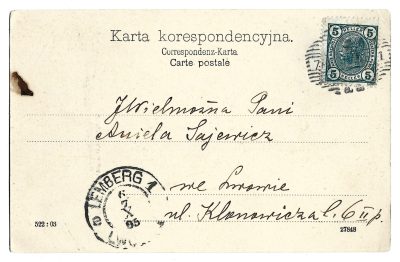 Karta korespondencyjna.
Correspondenz-Karta.
Carte postale
5 5
5 5
JWielmożna Pani
Aniela Sajewicz
we Lwowie
ul. Klonowicza l. 6 II p.
LEMBERG 1
LWÓW
522 : 03
27848